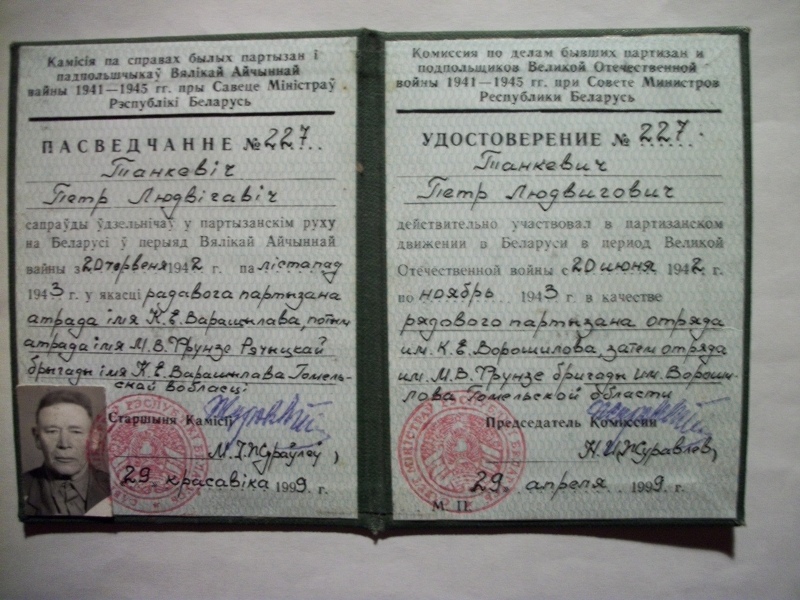 Камісія па справах былых партызан і
падпольшчыкаў Вялікай Айчыннай
вайны 1941—1945 гг. пры Савеце Міністраў
Рэспублікі Беларусь
ПАСВЕДЧАННЕ № 227
Танкевіч
Петр Людвігавіч
сапраўды ўдзельнічаў у партызанскім руху
на Беларусі ў перыяд Вялікай Айчыннай
вайны з 20 чэрвеня 1942 г. па лістапад
1943 г. у якасці радавога партызана
атрада імя К.Е. Варашылава, потым
атрада імя М.В. Фрунзе Рэчыцкай
брыгады імя К.Е. Варашылава Гомель-
скай вобласці
Старшыня Камісіі
М.І. Жураўлеў
29 красавіка 1999 г.
Комиссия по делам бывших партизан и
подпольщиков Великой Отечественной
войны 1941—1945 гг. при Совете Министров
Республики Беларусь
УДОСТОВЕРЕНИЕ № 227
Танкевич
Петр Людвигович
действительно участвовал в партизанском
движении в Беларуси в период Великой
Отечественной войны с 20 июня 1942 г.
по ноябрь 1943 г. в качестве
рядового партызана отряда
им. К.Е. Ворошилова, затем отряда
им. М.В. Фрунзе бригады им. Вороши-
лова Гомельской области
Председатель Комиссии
Н.И. Журавлев
29 апреля 1999 г.
М. П.